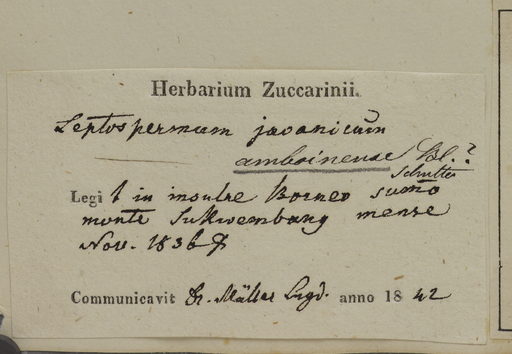 Herbarium Zuccarinii.
Leptospermum javanicum
amboinense Bl.?
Legit in insulae Borneo sumo
monte Sukwembang mense
Nov. 1836
Communicavit Dr. Müller Lugd. anno 1842